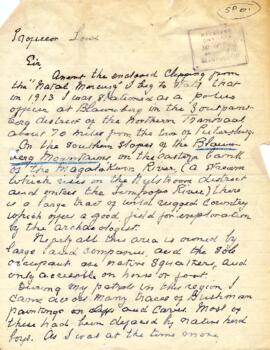 Sir,
Anent the enclosed clipping from
the "Natal Mercury" I beg to state that
in 1913 I was stationed as a police
officer at Blauwberg in the Zoutpans-
berg district of the Northern Transvaal
about 70 miles from the town of Pietersburg.
On the southern slopes of the Blauw-
berg Mountains on the eastern bank
of the Magalakwin River, (a stream
which rises in the Nylstroom district
and enters the Limpopo River) there
is a large tract of wild rugged country
which offers a good field for exploration
by the archaeologist.
Nearly all this area is owned by
large land companies, and the sole
occupants are native squatters, and
only accessible on horse or foot.
During my patrols in this region I
came across many traces of Bushman
paintings on cliffs and caves. Most of
these had been defaced by native herd
boys. As I was at the time once